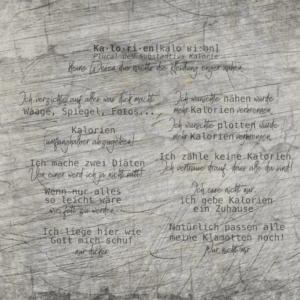 Ka·lo·ri·en[kaloˈʁiːən]
Plural des Substantivs Kalorie
kleine Wesen, die nachts die Kleidung enger nähen.
Ich verzichte auf alles was dick macht:
Waage, Spiegel, Fotos...
Kalorien
(umfangreicher abzugeben!
Ich mache zwei Diäten
Von einer werd ich ja nicht satt!
Wenn nur alles
so leicht wäre
wie fett zu werden
Ich liege hier wie
Gott mich schuf
nur dicker
Ich wünschte nähen würde
mehr Kalorien verbrennen.
Ich wünschte plotten würde
mehr Kalorien verbrennen.
Ich zähle keine Kalorien
Ich vertraue drauf, dass alle da sind!
Ich esse nicht nur,
ich gebe Kalorien
ein Zuhause
Natürlich passen alle
meine Klamotten noch!
Nur nicht mir